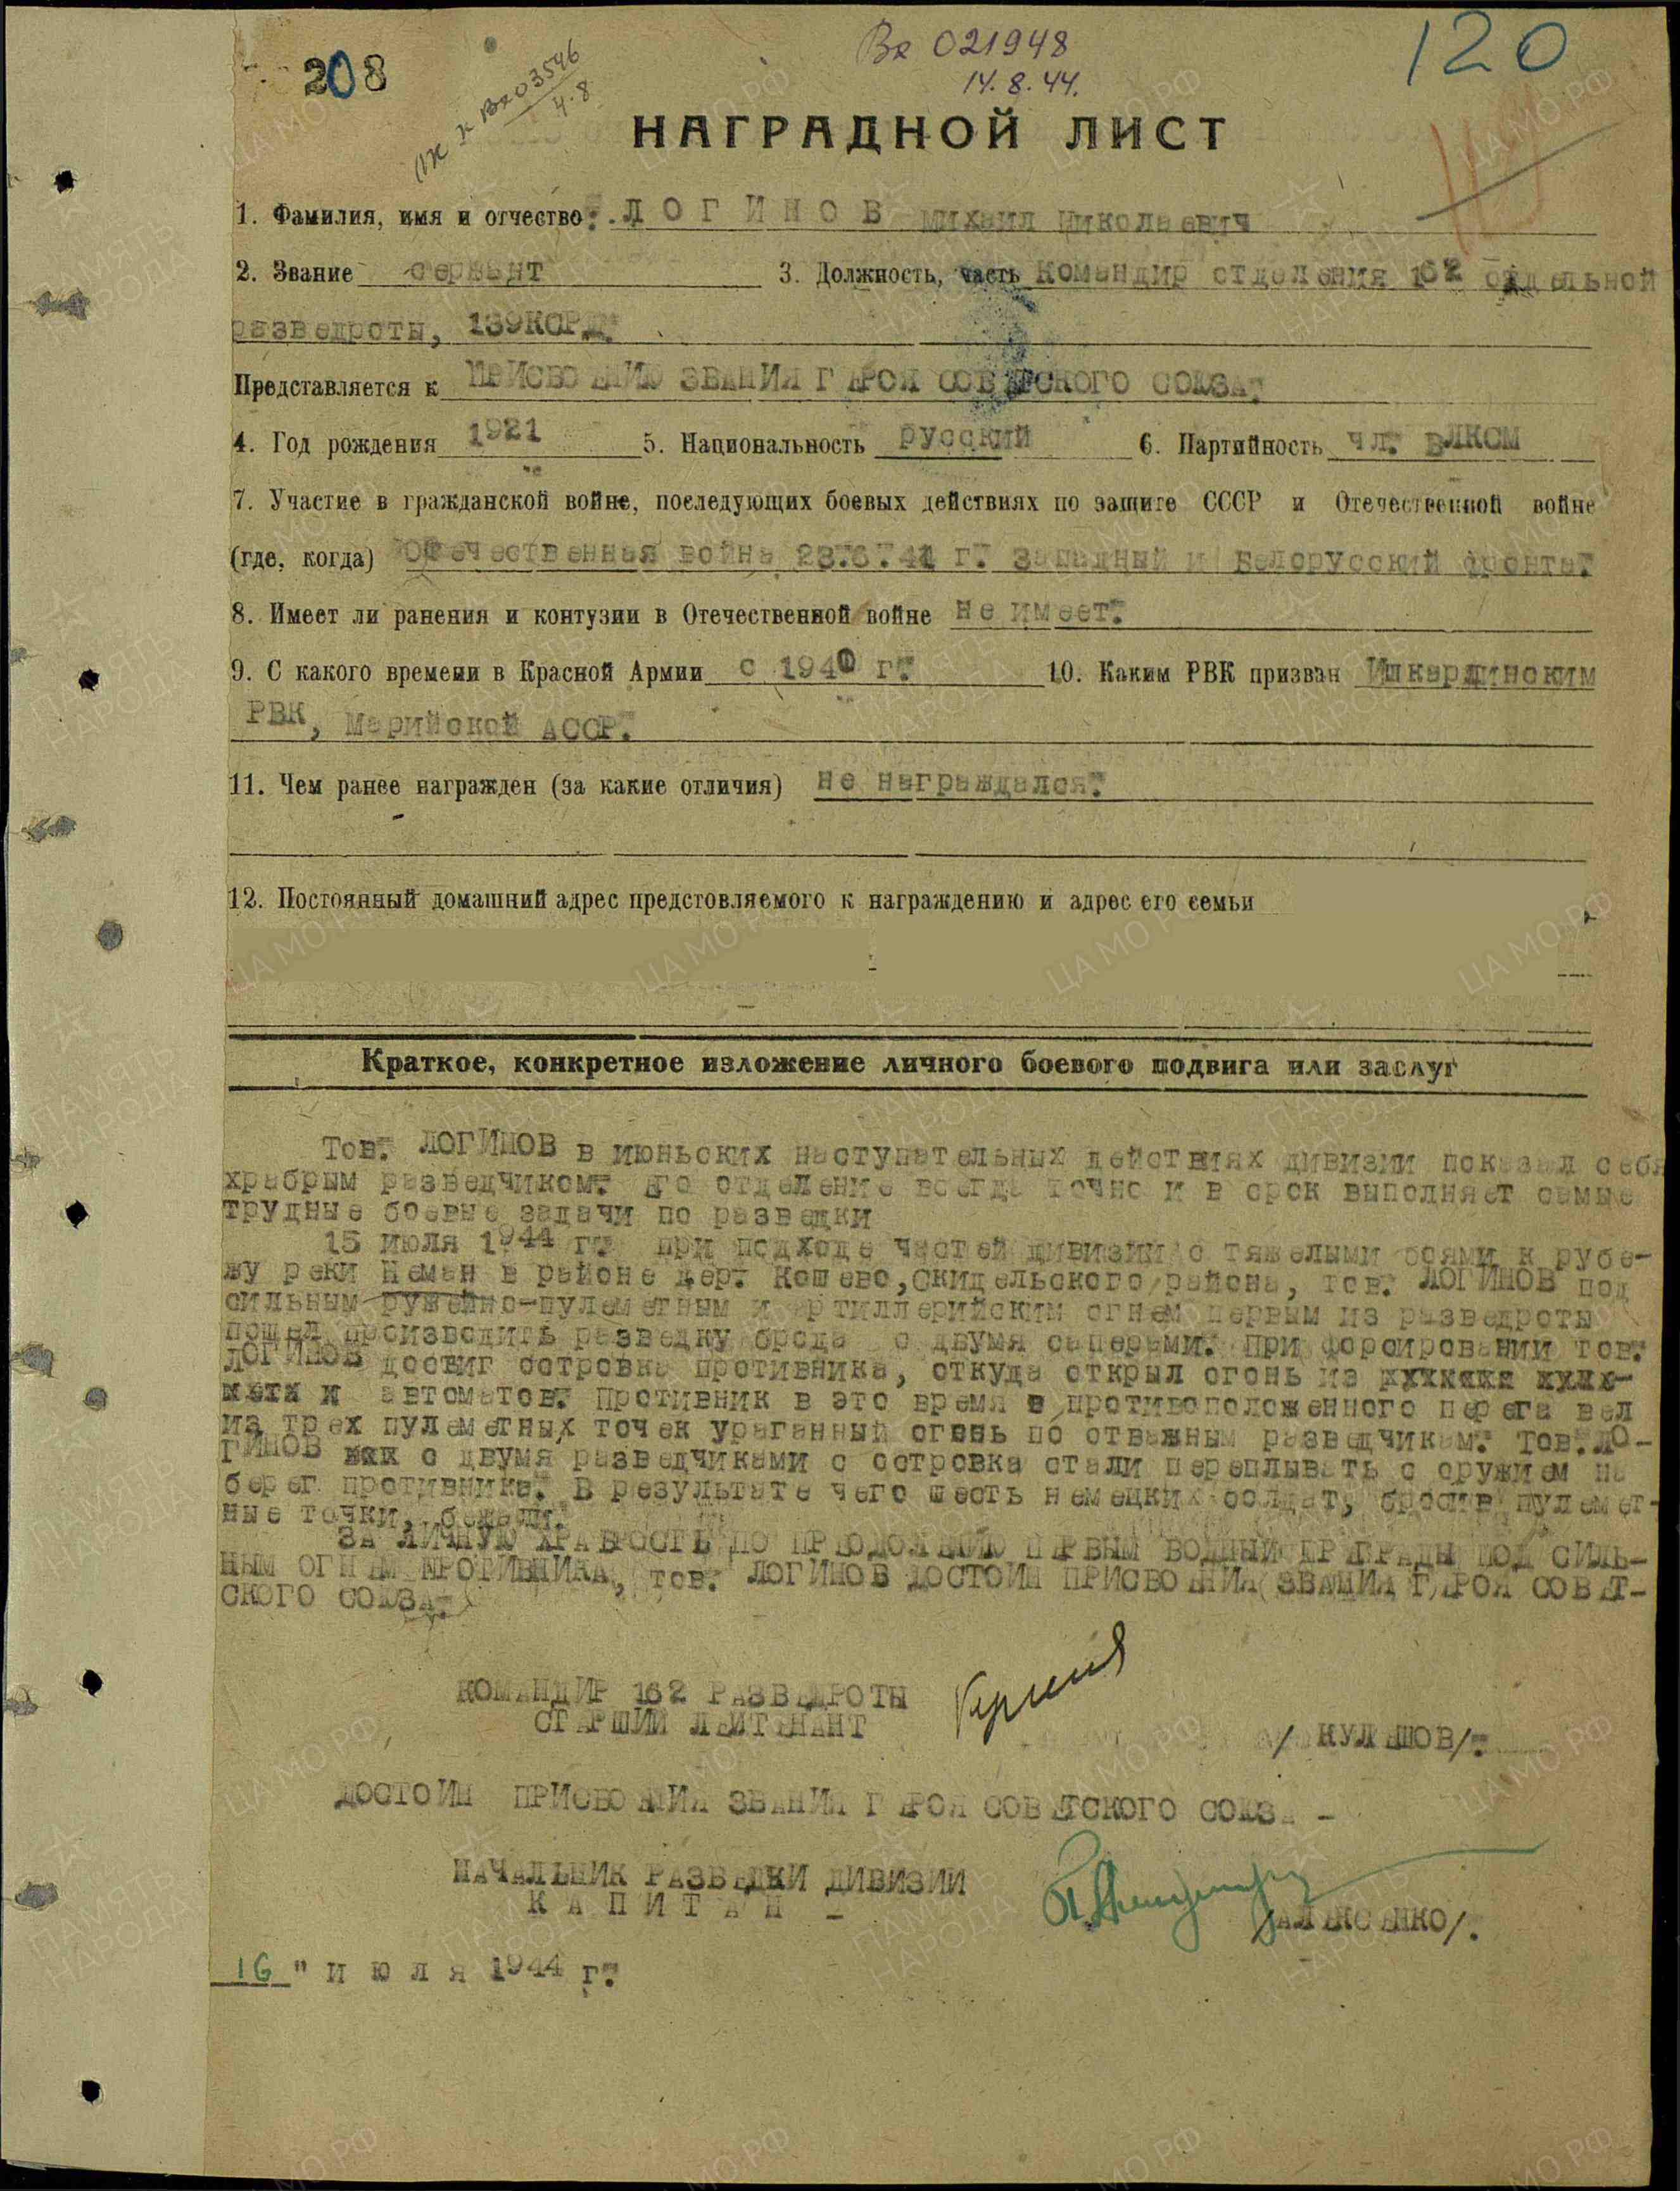 208
Вх 021948
14.8.44.
120
НАГРАДНОЙ ЛИСТ
1. Фамилия, имя и отчество: ЛОГИНОВ Михаил Николаевич
2. Звание сержант 3. Должность, часть Командир отделения 162 отдельной
разведроты, 139КСРД.
Представляется к ПРИСВОЕНИЮ ЗВАНИЯ ГЕРОЯ СОВЕТСКОГО СОЮЗА.
4. Год рождения 1921 5. Национальность русский 6. Партийность чл. ВЛКСМ
7. Участие в гражданской войне, последующих боевых действиях по защите СССР и Отечественной войне
(где, когда) Отечественная война 23.6.41 г. Западный и Белорусский фронта.
8. Имеет ли ранения и контузии в Отечественной войне не имеет.
9. С какого времени в Красной Армии с 1940 г. 10. Каким РВК призван
РВК, Марийской АССР.
11. Чем ранее награжден (за какие отличия) не награждался.
12. Постоянный домашний адрес предстовляемого к награждению и адрес его семьи
Краткое, конкретное изложение личного боевого подвига или заслуг
Тов. ЛОГИНОВ в июньских наступательных действиях дивизии показал себя
храбрым разведчиком. Его отделение всегда точно и в срок выполняет самые
трудные боевые задачи по разведки
15 июля 1944 г. при подходе частей дивизии с тяжелыми боями к рубе-
жу реки Неман в районе дер. Кошево, Скидельского района, тов. ЛОГИНОВ под
сильным ружейно-пулеметным и артиллерийским огнем первым из разведроты
пошел производить разведку брода с двумя саперами. При форсировании тов.
ЛОГИНОВ достиг островка противника, откуда открыл огонь из
автоматов. Противник в это время с противоположенного перега вел
из трех пулеметных точек ураганный огонь по отважным разведчикам. Тов. ЛО-
ГИНОВ с двумя разведчиками с островка стали переплывать с оружием на
берег противника. В результате чего шесть немецких солдат, бросив пулемет-
ные точки, бежали.
ЗА ЛИЧНУЮ ХРАБРОСТЬ ПО ПРЕОДОЛЕНИЮ ПЕРВЫМ ВОДНЫЙ ПРЕГРАДЫ ПОД СИЛЬ-
НЫМ ОГНЕМ ПРОТИВНИКА, тов. ЛОГИНОВ ДОСТОИН ПРИСВОЕНИЯ ЗВАНИЯ ГЕРОЯ СОВЕТ-
СКОГО СОЮЗА.
КОМАНДИР 162 РАЗВЕДРОТЫ
СТАРШИЙ ЛЕЙТЕНАНТ
/КУЛЕШОВ/.
ДОСТОИН ПРИСВОЕНИЯ ЗВАНИЯ ГЕРОЯ СОВЕТСКОГО СОЮЗА -
НАЧАЛЬНИК РАЗВЕДКИ ДИВИЗИИ
КАПИТАН -
/АЛЕКСЕЕНКО/.
16 " июля 1944 г.